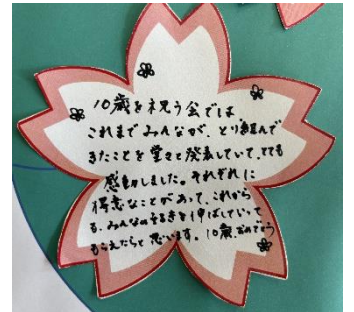 10歳を祝う会では
これまでみんなが、とり組んで
きたことを堂々と発表していて、とても
感動しました。それぞれに
得意なことがあって、これから
も、みんなの好きを伸ばしていって
もらえたらと思います。10歳、おめでとう